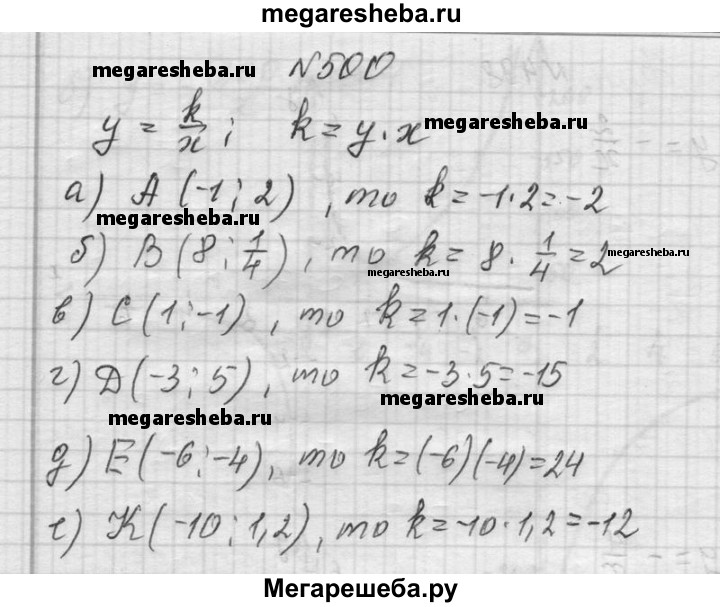 megaresheba.ru
megaresheba.ru №500
y = k/x ; k = y · x megaresheba.ru
а) A (-1 ; 2) , то k = -1 · 2 = -2
megaresheba.ru
б) B (8 ; 1/4) , то k = 8 · 1/4 = 2 megaresheba.ru
megaresheba.ru
в) C (1 ; -1) , то k = 1 · (-1) = -1
г) D (-3 ; 5) , то k = -3 · 5 = -15
megaresheba.ru
megaresheba.ru
д) E (-6 ; -4), то k = (-6)(-4) = 24
е) K (-10 ; 1,2), то k = -10 · 1,2 = -12
Мегарешеба.ру